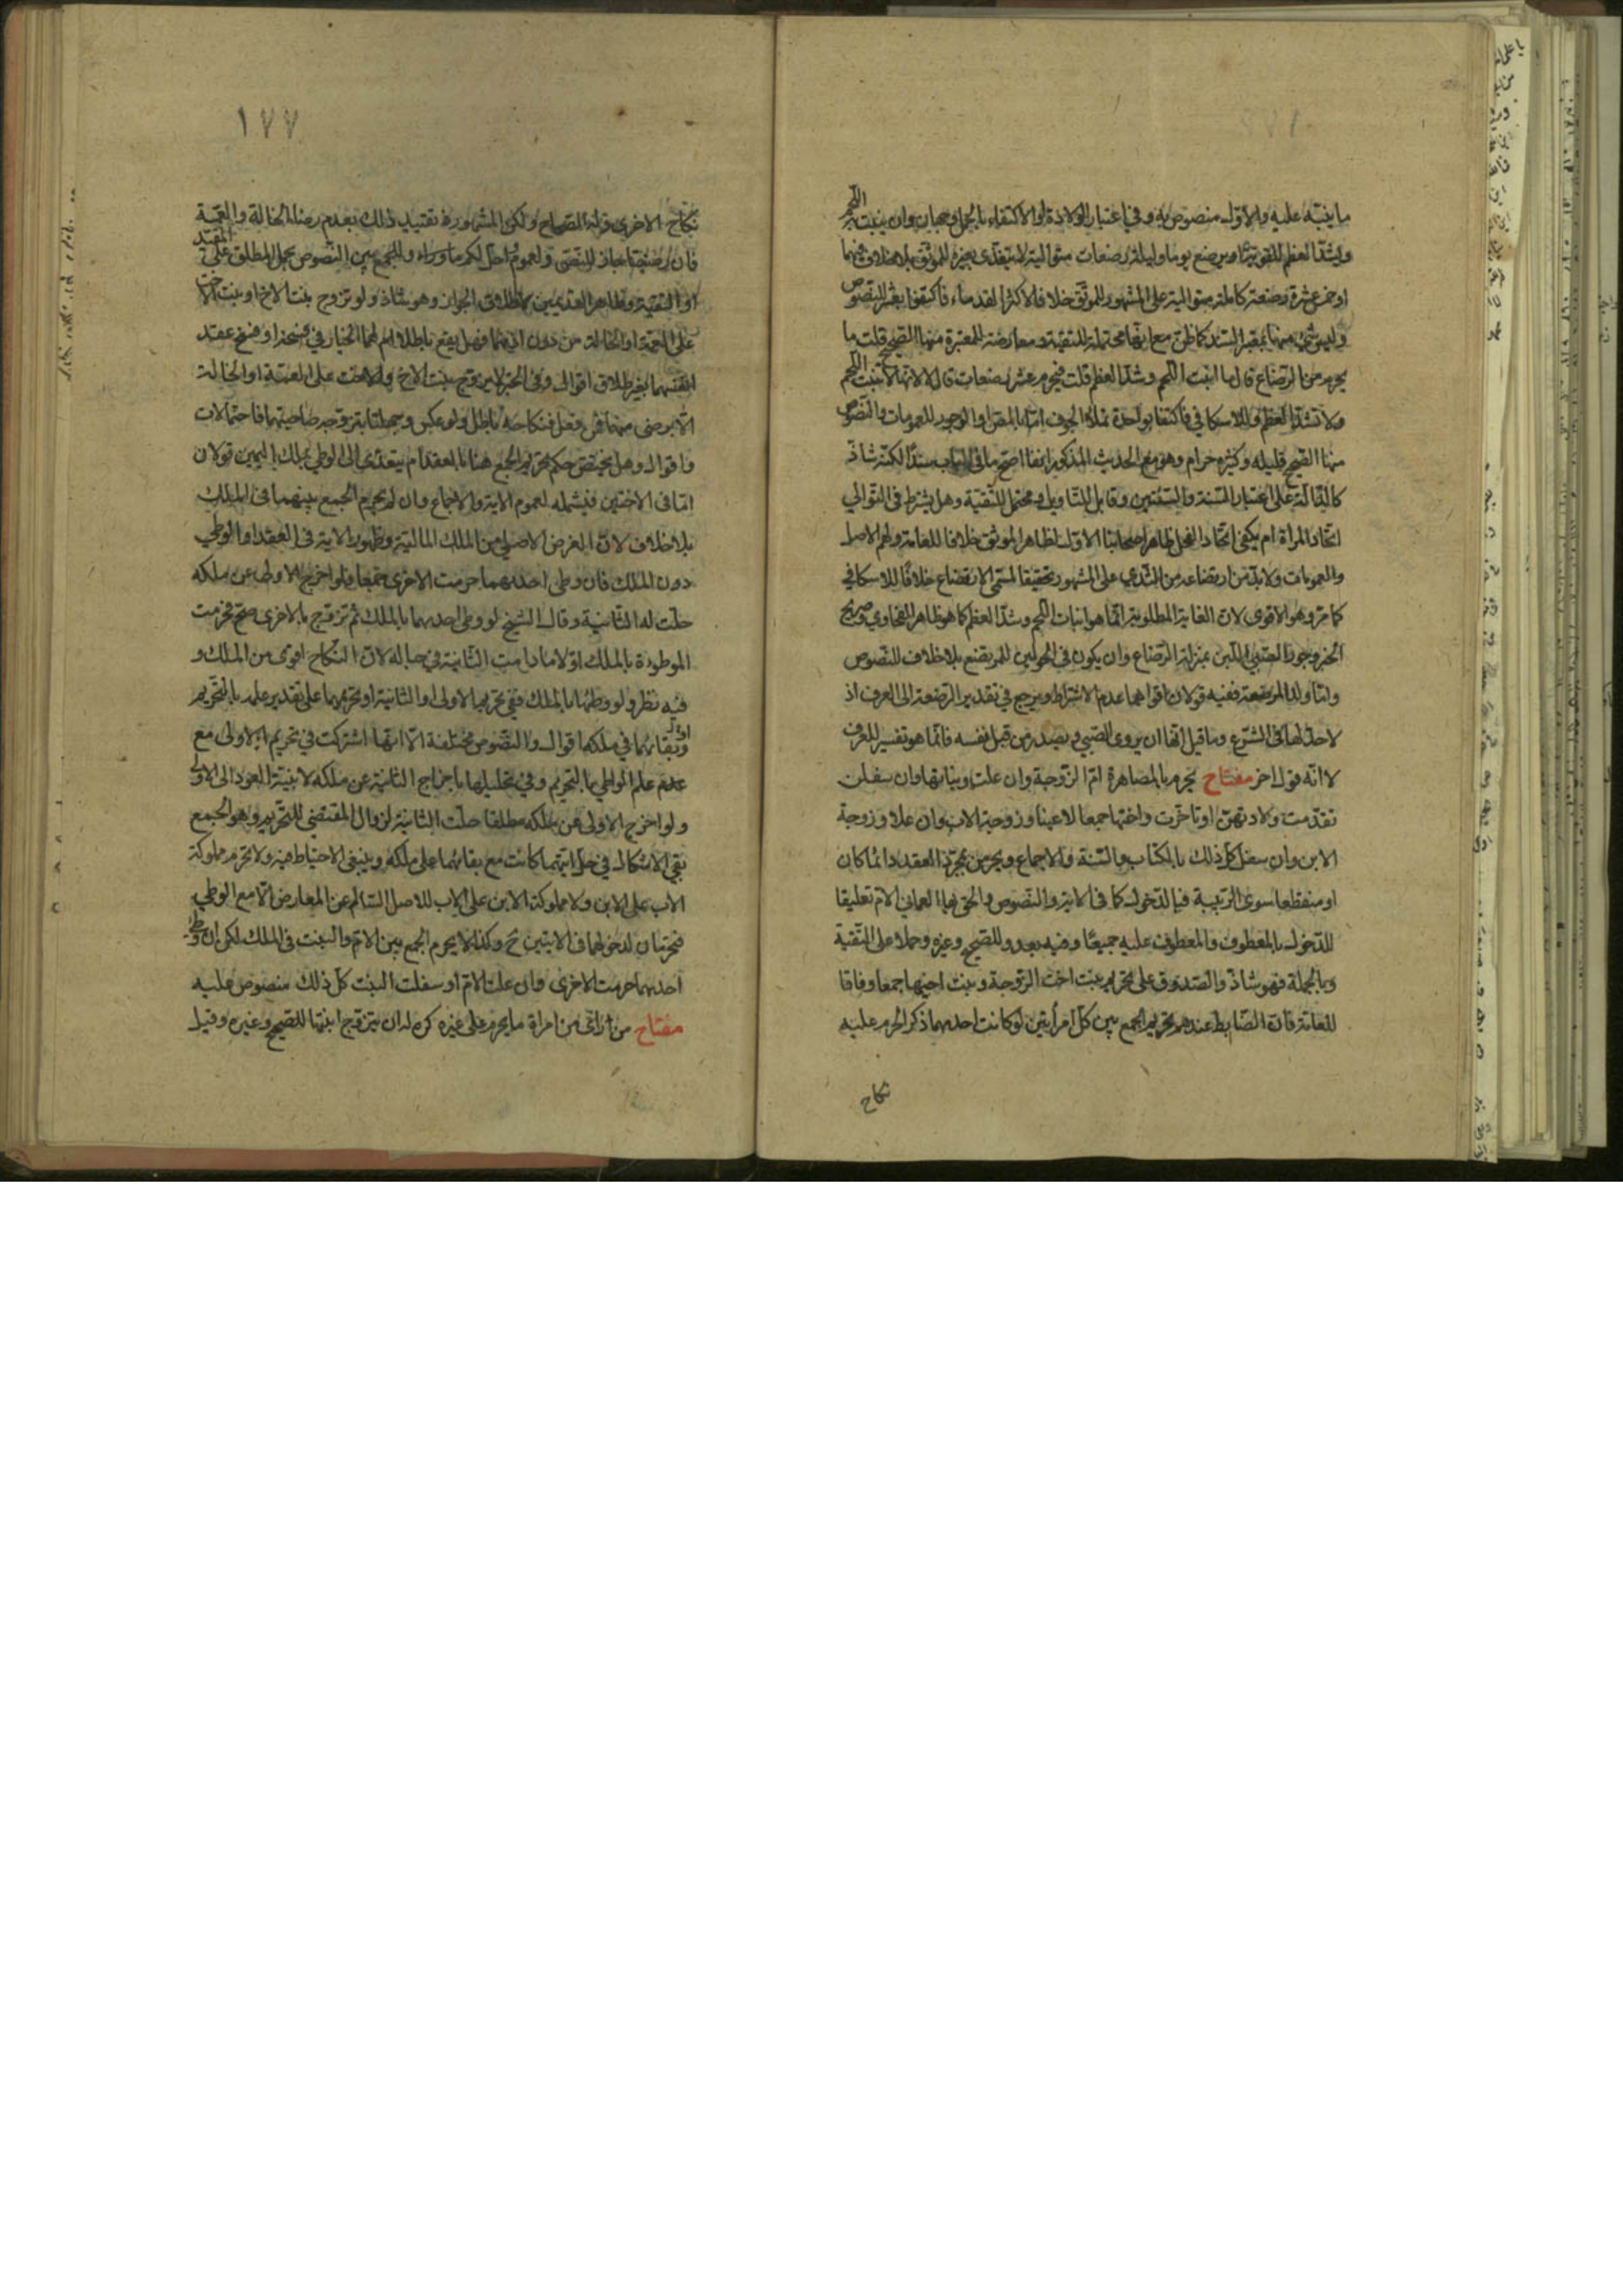 ما ينبّه عليه والاوّل منصوص به وفي اعتبار الولادة او الاكتفاء بالحمل وجهان وان ينبت به اللحم
ويشتدّ العظم للقوية او يرضع يوما وليلة رضعات متوالية لا يتغذى بغيره للموثق بلا خلاف فيهما
او خمس عشرة رضعة كاملة متوالية على المشهور للموثق خلافا لاكثر القدماء فاكتفوا بعشر للنصوص
وليس شيء منها بمعتبر السند كما ظنّ مع انها محتملة للتقية ومعارضة للمعتبرة منها الصحيح قلت ما
يحرم من الرضاع قال ما انبت اللحم وشدّ العظم قلت فيحرم عشر رضعات قال لا لانها لا تنبت اللحم
ولا تشدّ العظم وللاسكافي فاكتفا بواحدة تملأ الجوف امّا بالمصّ او الوجور للعمومات والنصوص
منها الصحيح قليله وكثيره حرام وهو مع الحديث المذكور انفا اصح ما في الباب سندا لكنّه شاذ
كالدّالة على اعتبار السّنة والسّنتين وقابل للتّاويل ومحتمل للتّقيّة وهل يشترط في التّوالي
اتحاد المراة ام يكفي اتّحاد الفحل ظاهر اصحابنا الاوّل لظاهر الموثق خلافا للعامة ولهم الاصل
والعمومات ولا بدّ من ارتضاعه من الثّدي على المشهور تحقيقا لمسمّى الارتضاع خلافا للاسكافي
كما مر وهو الاقوى لان الغاية المطلوبة انّما هو انبات اللّحم وشدّ العظم كما هو ظاهر الفحاوي وصريح
الخبر وجور الصّبي اللّبن بمنزلة الرّضاع وان يكون في الحولين للمرتضع بلا خلاف للنّصوص
وامّا ولد المرضعة ففيه قولان اقواهما عدم الاشتراط ويرجع في تقدير الرّضعة الى العرف اذ
لا حدّ لها في الشّرع وما قيل انّها ان يروى الصّبي ويصدر من قبل نفسه فانّما هو تفسير للعرف
لا انّه قول اخر مفتاح يحرم بالمصاهرة امّ الزّوجة وان علت وبناتها وان سفلن
تقدّمت ولادتهنّ او تاخّرت واختها جمعا لا عينا وزوجة الاب وان علا وزوجة
الابن وان سفل كلّ ذلك بالكتاب والسّنّة والاجماع ويحرمن بمجرّد العقد دائما كان
او منقطعا سوى الرّبيبة فبالدّخول كما في الاية والنّصوص والحق بها العماني الامّ تعليقا
للدّخول بالمعطوف والمعطوف عليه جميعًا وفيه بعد وللصّحيح وغيره وحملا على التّقيّة
وبالجملة فهو شاذّ والصّدوق على تحريم بنت اخت الزّوجة وبنت اخيها جمعا وفاقا
للعامّة فان الضّابط عندهم تحريم الجمع بين كلّ امرأتين لو كانت احديهما ذكرا لحرم عليه
نكاح
١٧٧
نكاح الاخرى وله الصّحاح ولكن المشهور تقييد ذلك بعدم رضا الخالة والعمّة
فان رضيتا جاز للنّصّ ولعموم احلّ لكم ما وراء والجمع بين النّصوص بحمل المطلق على المقيّد
او التّقيّة وظاهر القديمين اطلاق الجواز وهو شاذ ولو تزوج بنت الاخ او بنت الاخت
على العمّة او الخالة من دون اذنهما فهل يقع باطلا ام لهما الخيار في فسخه او فسخ عقد
انفسهما بغير طلاق اقوال وفي الخبر لا يزوج بنت الاخ والاخت على العمّة او الخالة
الّا برضى منهما فمن فعل فنكاحه باطل ولو عكس وجهلتا بتزوّجه صاحبتهما فاحتمالات
واقوال وهل يختصّ حكم تحريم الجمع هنا بالعقد ام يتعدّى الى الوطي بملك اليمين قولان
امّا في الاختين فيشمله لعموم الاية والاجماع وان لم يحرم الجمع بينهما في الملك
بلا خلاف لانّ الغرض الاصلي من الملك الماليّة وظهور الاية في العقد او الوطي
دون الملك فان وطى احديهما حرمت الاخرى جمعا فلو اخرج الاولى عن ملكه
حلّت له الثّانية وقال الشيخ لو وطى احديهما بالملك ثمّ تزوّج بالاخرى صحّ وحرمت
الموطوءة بالملك اوّلا ما دامت الثّانية في حباله لانّ النّكاح اقوى من الملك و
فيه نظر ولو وطئهما بالملك ففي تحريم الاولى او الثانية او تحريمهما على تقدير علمه بالتّحريم
او بقائهما في ملكه اقوال والنّصوص مختلفة الّا انّها اشتركت في تحريم الاولى مع
عدم علم الواطي بالتحريم وفي تحليلها باخراج الثانية عن ملكه لا بنيّة العود الى الاولى
ولو اخرج الاولى عن ملكه مطلقا حلّت الثانية لزوال المقتضي للتّحريم وهو الجمع
بقي الاشكال في حلّ ايّتهما كانت مع بقائهما على ملكه وينبغي الاحتياط فيه ولا تحرم مملوكة
الاب على الابن ولا مملوكة الابن على الاب للاصل السّالم عن المعارض الّا مع الوطي
فتحرمان لدخولهما في الايتين ح وكذا لا يحرم الجمع بين الامّ والبنت في الملك لكن ان وطي
احديهما حرمت الاخرى وان علت الامّ او سفلت البنت كلّ ذلك منصوص عليه
مفتاح من راى من امراة ما يحرم على غيره كره له ان يتزوّج ابنتها للصّحيح وغيره وقيل